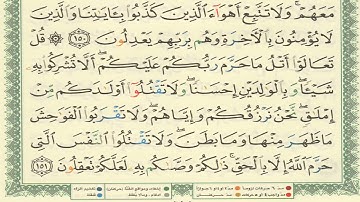 مَعَهُمْ ۚ وَلَا تَتَّبِعْ أَهْوَآءَ ٱلَّذِينَ كَذَّبُوا۟ بِـَٔايَـٰتِنَا وَٱلَّذِينَ
لَا يُؤْمِنُونَ بِٱلْـَٔاخِرَةِ وَهُم بِرَبِّهِمْ يَعْدِلُونَ ١٥٠ ۞ قُلْ
تَعَالَوْا۟ أَتْلُ مَا حَرَّمَ رَبُّكُمْ عَلَيْكُمْ ۖ أَلَّا تُشْرِكُوا۟ بِهِۦ
شَيْـًٔا ۖ وَبِٱلْوَٰلِدَيْنِ إِحْسَـٰنًا ۖ وَلَا تَقْتُلُوٓا۟ أَوْلَـٰدَكُم مِّنْ
إِمْلَـٰقٍ ۖ نَّحْنُ نَرْزُقُكُمْ وَإِيَّاهُمْ ۖ وَلَا تَقْرَبُوا۟ ٱلْفَوَٰحِشَ
مَا ظَهَرَ مِنْهَا وَمَا بَطَنَ ۖ وَلَا تَقْتُلُوا۟ ٱلنَّفْسَ ٱلَّتِى
حَرَّمَ ٱللَّهُ إِلَّا بِٱلْحَقِّ ۚ ذَٰلِكُمْ وَصَّىٰكُم بِهِۦ لَعَلَّكُمْ تَعْقِلُونَ ١٥١